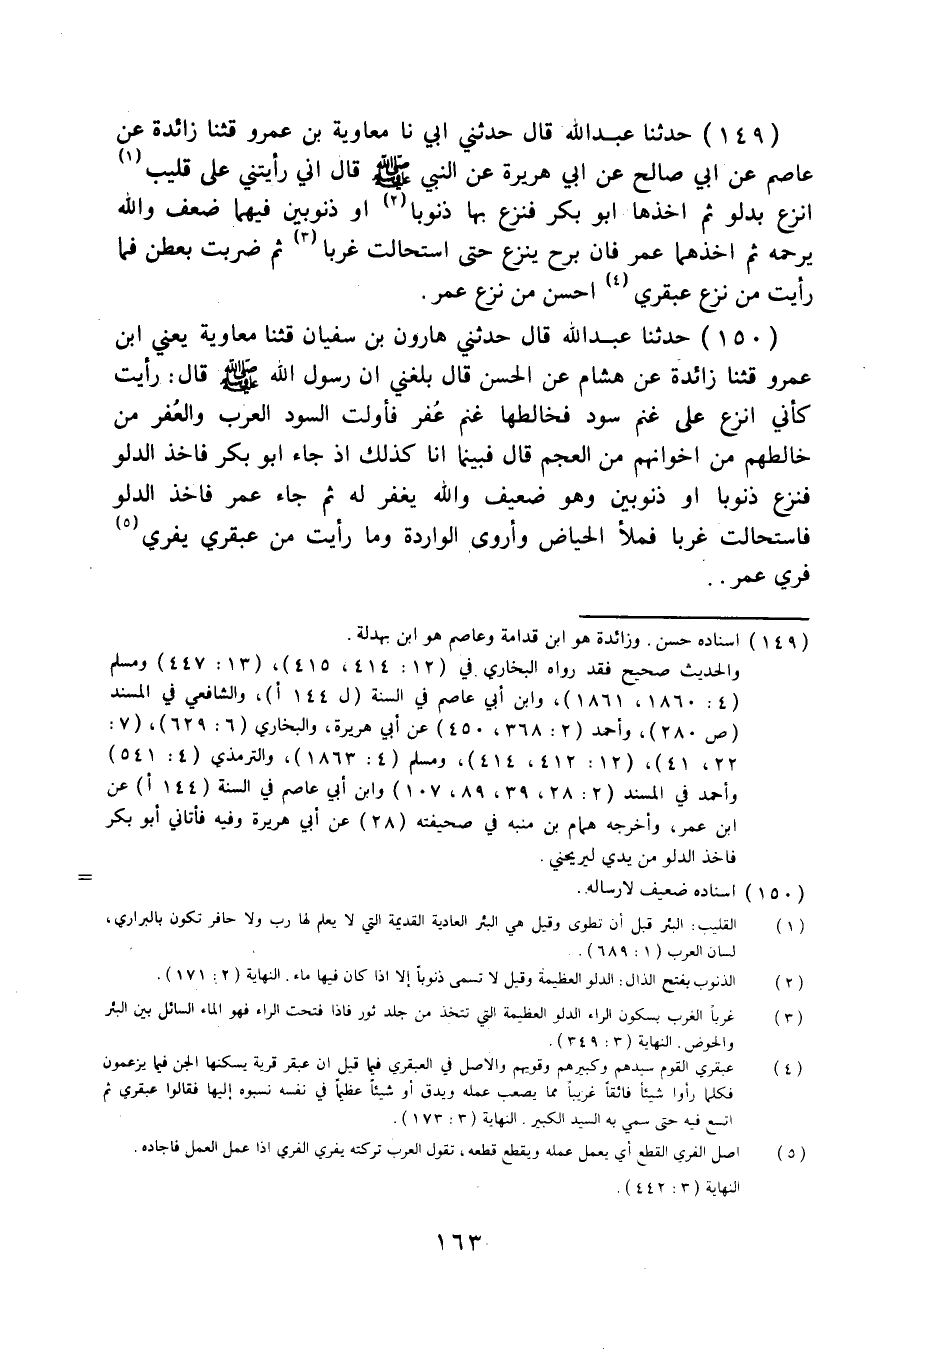 (١٤٩) حدثنا عبدالله قال حدثني ابي نا معاوية بن عمرو قثنا زائدة عن
عاصم عن ابي صالح عن ابي هريرة عن النبي ﷺ قال اني رأيتني على قليب(١)
انزع بدلو ثم اخذها ابو بكر فنزع بها ذنوبا(٢) او ذنوبين فيهما ضعف والله
يرحمه ثم اخذها عمر فان برح ينزع حتى استحالت غربا(٣) ثم ضربت بعطن فما
رأيت من نزع عبقري(٤) احسن من نزع عمر.
(١٥٠) حدثنا عبدالله قال حدثني هارون بن سفيان قثنا معاوية يعني ابن
عمرو قثنا زائدة عن هشام عن الحسن قال بلغني ان رسول الله ﷺ قال: رأيت
كأني انزع على غنم سود فخالطها غنم عُفر فأولت السود العرب والعُفر من
خالطهم من اخوانهم من العجم قال فبينما انا كذلك اذ جاء ابو بكر فاخذ الدلو
فنزع ذنوبا او ذنوبين وهو ضعيف والله يغفر له ثم جاء عمر فاخذ الدلو
فاستحالت غربا فملأ الحياض وأروى الواردة وما رأيت من عبقري يفري(٥)
فري عمر..
(١٤٩) اسناده حسن. وزائدة هو ابن قدامة وعاصم هو ابن بهدلة.
والحديث صحيح فقد رواه البخاري في (١٢: ٤١٤، ٤١٥)، (١٣: ٤٤٧) ومسلم
(٤: ١٨٦٠، ١٨٦١)، وابن أبي عاصم في السنة (ل ١٤٤ أ)، والشافعي في المسند
(ص ٢٨٠)، وأحمد (٢: ٣٦٨، ٤٥٠) عن أبي هريرة، والبخاري (٦: ٦٢٩)، (٧:
٢٢، ٤١)، (١٢: ٤١٢، ٤١٤)، ومسلم (٤: ١٨٦٣)، والترمذي (٤: ٥٤١)
وأحمد في المسند (٢: ٢٨، ٣٩، ٨٩، ١٠٧) وابن أبي عاصم في السنة (١٤٤ أ) عن
ابن عمر، وأخرجه همام بن منبه في صحيفته (٢٨) عن أبي هريرة وفيه فأتاني أبو بكر
فاخذ الدلو من يدي ليريحني.
(١٥٠) اسناده ضعيف لارساله. =
(١) القليب: البئر قبل أن تطوى وقيل هي البئر العادية القديمة التي لا يعلم لها رب ولا حافر تكون بالبراري،
لسان العرب (١: ٦٨٩).
(٢) الذنوب بفتح الذال: الدلو العظيمة وقيل لا تسمى ذنوباً إلا اذا كان فيها ماء. النهاية (٢: ١٧١).
(٣) غرباً الغرب بسكون الراء الدلو العظيمة التي تتخذ من جلد ثور فاذا فتحت الراء فهو الماء السائل بين البئر
والحوض. النهاية (٣: ٣٤٩).
(٤) عبقري القوم سيدهم وكبيرهم وقويهم والاصل في العبقري فيما قيل ان عبقر قرية يسكنها الجن فيما يزعمون
فكلما رأوا شيئاً فائقاً غريباً مما يصعب عمله ويدق أو شيئاً عظيماً في نفسه نسبوه إليها فقالوا عبقري ثم
اتسع فيه حتى سمي به السيد الكبير. النهاية (٣: ١٧٣).
(٥) اصل الفري القطع أي يعمل عمله ويقطع قطعه، تقول العرب تركته يفري الفري اذا عمل العمل فاجاده.
النهاية (٣: ٤٤٢).
١٦٣